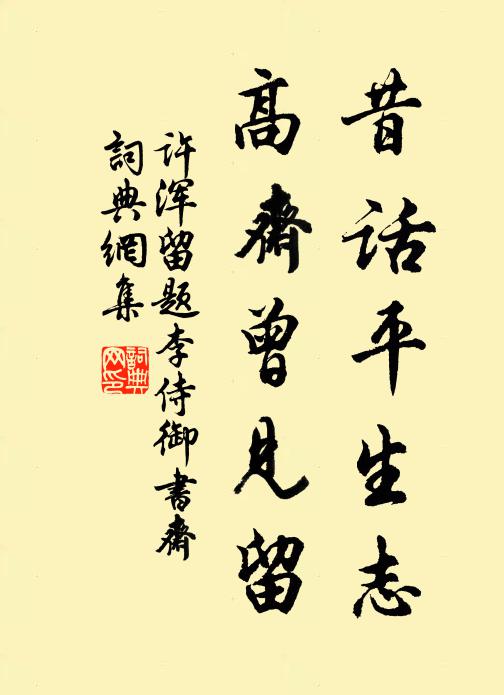 昔话平生志
高斋曾见留
许浑留题李侍御书斋
词典網集
詞典网印